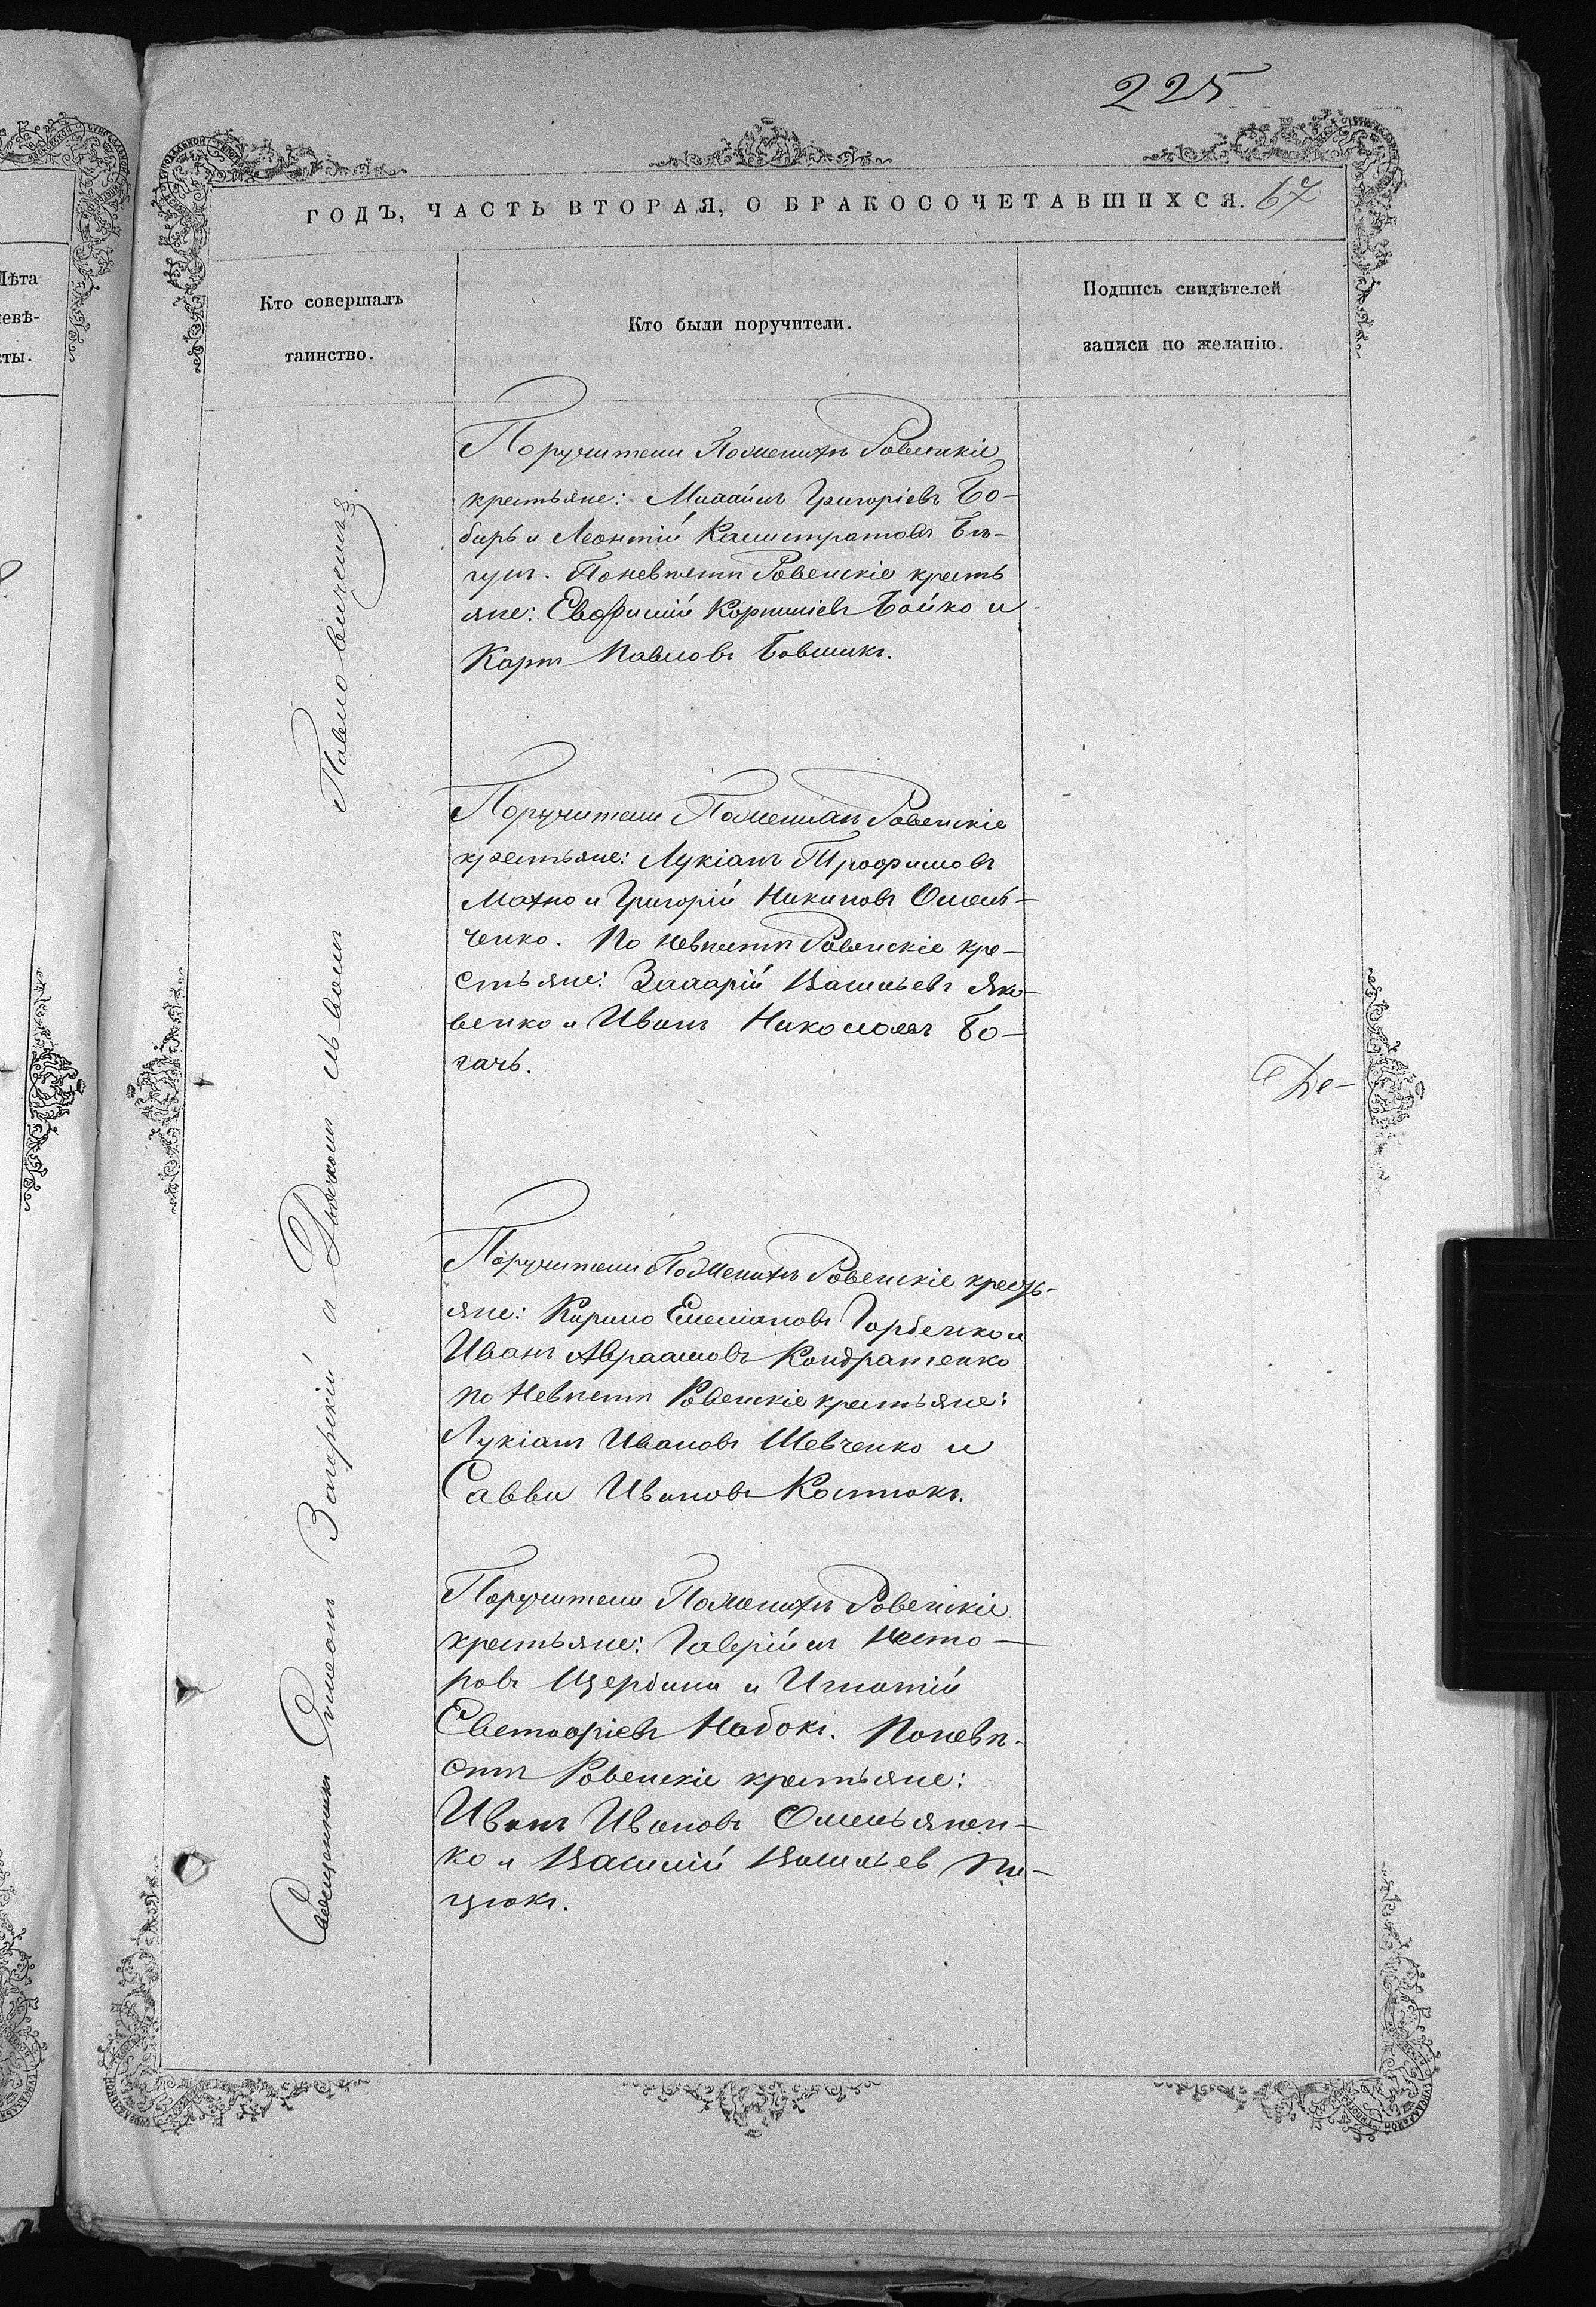 225
ГОДЪ, ЧАСТЬ ВТОРАЯ, О БРАКОСОЧЕТАВШИХСЯ. 67
Лѣта
невѣ-
сты.
Кто совершалъ
таинство.
Кто были поручители.
Подпись свидѣтелей
записи по желанію.
Священникъ Симеонъ Загорскій и Дьячкомъ Павловичемъ.
Поручители По женихѣ Ровенскіе
крестьяне: Михаилъ Григоріевъ Бо-
биръ и Леонтій Калистратовъ Бѣ-
гунъ. По невѣстѣ Ровенскіе кресть
яне: Евѳимій Корниліевъ Бойко и
Карпъ Павловъ Бовшикъ.
Поручители По женихѣ Ровенскіе
крестьяне: Лукіанъ Трофимовъ
Махно и Григорій Никиповъ Омель-
ченко. По невѣстѣ Ровенскіе кре-
стьяне: Захарій Васильевъ Яко-
венко и Иванъ Николаевъ Бо-
гачь.
Де-
Поручители По женихѣ Ровенскіе кресть-
яне: Кирило Емеліановъ Горбенко и
Иванъ Авраамовъ Кондратенко
по Невѣстѣ Ровенскіе крестьяне:
Лукіанъ Ивановъ Шевченко и
Савва Ивановъ Костюкъ.
Поручители По женихѣ Ровенскіе
крестьяне: Гавріилъ Несто-
ровъ Щербина и Игнатій
Евстафіевъ Набокъ. По невѣ-
стѣ Ровенскіе крестьяне:
Иванъ Ивановъ Омельянен-
ко и Василій Васильев Па-
цюкъ.